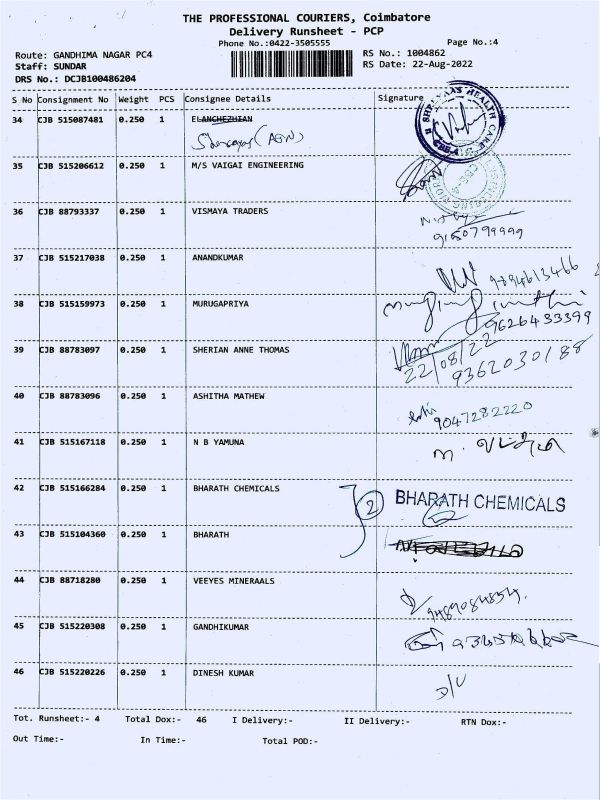 THE PROFESSIONAL COURIERS, Coimbatore
Delivery Runsheet - PCP
Phone No.:0422-3505555 Page No.:4
Route: GANDHIMA NAGAR PC4 RS No.: 1004862
Staff: SUNDAR RS Date: 22-Aug-2022
DRS No.: DCJB100486204
S No Consignment No Weight PCS Consignee Details Signature
34 CJB 515087481 0.250 1 ELANCHEZHIAN
35 CJB 515206612 0.250 1 M/S VAIGAI ENGINEERING
36 CJB 88793337 0.250 1 VISMAYA TRADERS
9150799999
37 CJB 515217038 0.250 1 ANANDKUMAR
9894613466
38 CJB 515159973 0.250 1 MURUGAPRIYA
9626433399
39 CJB 88783097 0.250 1 SHERIAN ANNE THOMAS
22/08/22
9362030188
40 CJB 88783096 0.250 1 ASHITHA MATHEW
9047282220
41 CJB 515167118 0.250 1 N B YAMUNA
42 CJB 515166284 0.250 1 BHARATH CHEMICALS 2 BHARATH CHEMICALS
43 CJB 515104360 0.250 1 BHARATH
44 CJB 88718280 0.250 1 VEEYES MINERAALS
9489084854.
45 CJB 515220308 0.250 1 GANDHIKUMAR
46 CJB 515220226 0.250 1 DINESH KUMAR
D/U
Tot. Runsheet:- 4 Total Dox:- 46 I Delivery:- II Delivery:- RTN Dox:-
Out Time:- In Time:- Total POD:-